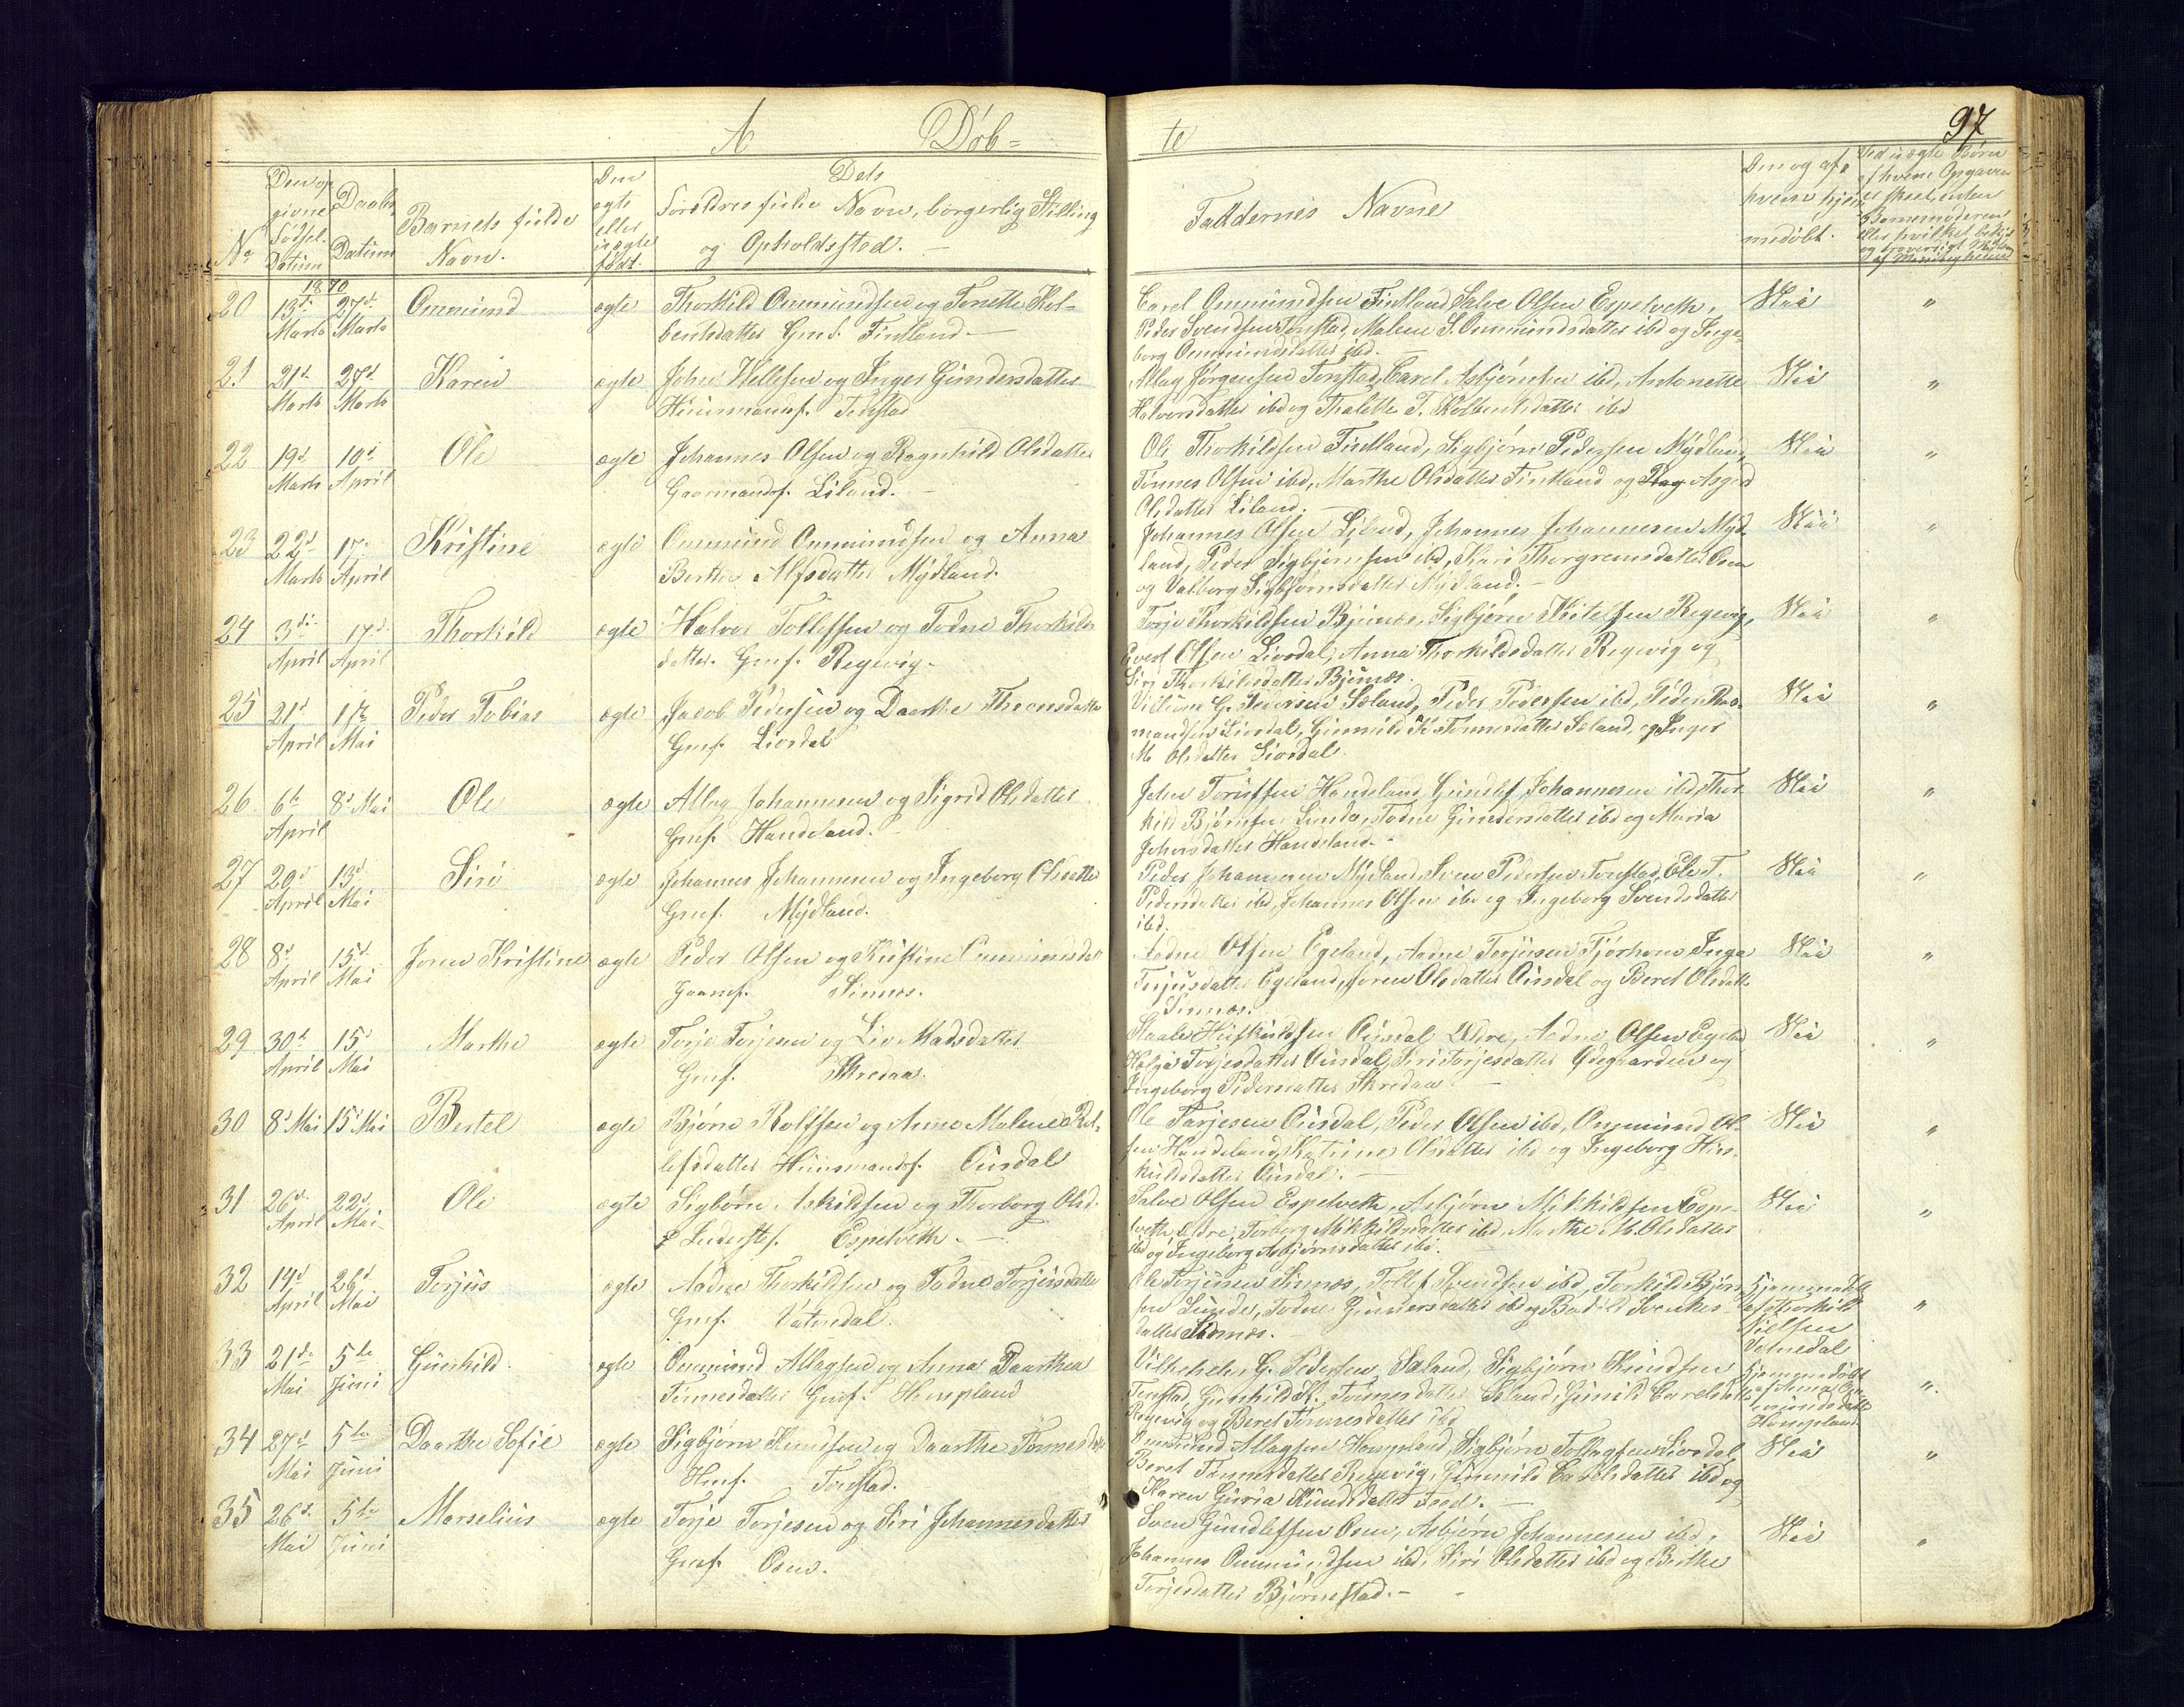 A Døb= te 97
No
Den op
givne
Fødsel
Datum
Daabs
Datum
Barnets fulde
Navn.
Om
ægte
eller
uægte
født.
Dets
Forældres fulde Navn, borgerlig Stilling
og Opholdssted. —
Faddernes Navne
Om og af
hvem hjem
medøbt.
Ved uægte Børn
af hvem Opgaven
er skeet, enten
Barnemoderen
eller hvilket
1870
20 13de Marts 27de Marts Ommund ægte Thorkild Ommundsen og Tonette Kol-
bentsdatter Gmf. Fintland. —
Carel Ommundsen Fintland, Salve Olsen Espelveth,
Peder Svendsen Tonstad, Malene S. Ommundsdatter ibd og Inge-
borg Ommundsdatter ibd. —
Nei "
21 21d Marts 27d Marts Karen ægte John Vellesen og Inger Gundersdatter
Huusmandsf. Tonstad
Atlag Jørgensen Tonstad, Carel Asbjørnsen ibd, Antonette
Halvorsdatter ibd og Thalette T. Kolbentsdatter ibd
Nei "
22 19d Marts 10d April Ole ægte Johannes Olsen og Ragnhild Olsdatter
Gaarmandsf. Liland. —
Ole Thorkildsen Fintland, Sigbjørn Pedersen Mydland,
Tønnes Olsen ibd, Marthe Olsdatter Fintland og Asgerd
Olsdatter Liland. —
Nei "
23 22d Marts 17d April Kristine ægte Ommund Ommundsen og Anna
Berthe Alfsdatter Mydland.
Johannes Olsen Liland, Johannes Johannesen Myd-
land, Peder Sigbjørnsen ibd, Kari Thorgremsdatter Osen
og Valborg Sigbjørnsdatter Mydland. —
Nei "
24 3die April 17d April Thorkild ægte Halvor Tollefsen og Todne Thorkilds
datter. Gmf. Regevig.
Torje Thorkildsen Bjunes, Sigbjørn Ketelsen Regevig,
Evert Olsen Liordal, Anna Thorkildsdatter Regevig og
Siri Thorkildsdatter Bjunes.
Nei "
25 21d April 1ste Mai Peder Tobias ægte Jacob Pedersen og Daarthe Theonsdatter
Gmf. Liordal
Villum G. Pedersen Seland, Peder Pedersen ibd, Peder Ras-
mundsen Liordal, Gunnild K. Tønnesdatter Seland, og Inger
M. Olsdatter Liordal.
Nei "
26 6te April 8d Mai Ole ægte Atlag Johannesen og Sigrid Olsdatter
Gmf. Handeland.
John Torisen Handeland, Gundlef Johannesen ibd, Thor-
kild Bjørnsen Lunde, Todne Gundersdatter ibd og Maria
Johnsdatter Handeland. —
Nei "
27 20d April 13d Mai Siri ægte Johannes Johannesen og Ingeborg Olsdatter
Gmf. Mydland.
Peder Johannesen Mydland, Sven Pedersen Tonstad, Ele T.
Pedersdatter ibd, Johannes Olsen ibd og Ingeborg Svendsdatter
ibd.
Nei "
28 8d April 15d Mai Joren Kristine ægte Peder Olsen og Kristine Ommundsdat
Gaarmf. Sinnes.
Aadne Olsen Egeland, Aadne Torjusen Tjørhom, Inga
Torjusdatter Egeland, Joren Olsdatter Ousdal og Beret Olsdatt-
Sinnes.
Nei "
29 30d April 15d Mai Marthe ægte Torje Torjesen og Liv Madsdatter
Gmf. Skredaa.
Staale Huskuldsen Ousdal Øvre, Aadne Olsen Egeland
Helga Torjesdatter Ousdal, Siri Torjesdatter Ødegaarden og
Ingeborg Pedersdatter Skredaa —
Nei "
30 8d Mai 15d Mai Bertel ægte Bjørn Rolfsen og Anne Malene Rol-
lefsdatter Huusmandsf. Ousdal
Ole Tarjesen Ousdal, Peder Olsen ibd, Ommund Ol-
sen Handeland, Katrine Olsdatter ibd og Ingeborg Hus-
kuldsdatter Ousdal. —
Nei "
31 26d April 22d Mai Ole ægte Sigbørn Askildsen og Thorborg Olsd.
Leilerstf. Espelveth. —
Salve Olsen Espelveth, Asbjørn Mikkildsen Espe-
lveth Ødre, Torborg Mikkildsdatter ibd, Marthe M. Olsdatter
ibd og Ingeborg Asbjørnsdatter ibd.
Nei "
32 19d April 26d Mai Torjus ægte Aadne Thorkildsen og Todne Torjusdatte
Gmf. Vatnedal.
Ole Torjusen Sinnes, Tollef Svendsen ibd, Torkild Bjørn-
sen Lunde, Todne Gundersdatter ibd og Bodild Svenkes-
datter Sinnes.
Hjemmedøbt
af Thorkild
Nielsen
Vatnedal
"
33 21de Mai 5te Juni Gunhild ægte Ommund Atlagsen og Anna Daarthea
Tønnesdatter Gmf. Hompland
Vilhelm G. Pedersen Seland, Sigbjørn Knudsen
Tonstad, Gunhild K. Tønnesdatter Seland, Gunild Carelsdatt
Regevig og Beret Tønnesdatter ibd
Hjemmedøbt
af Anna Om-
mundsdatt
Hompland
"
34 27d Mai 5te Juni Daarthe Sofie ægte Sigbjørn Knudsen og Daarthe Tønnesdatt
Hmf. Tonstad.
Ommund Atlagsen Hompland, Sigbjørn Tollagsen Liordal
Beret Tønnesdatter Regevig, Gunnild Carelsdatter ibd og
Karen Guria Knudsdatter Feed. —
Nei "
35 26d Mai 5te Juni Marselius ægte Torje Torjesen og Siri Johannesdatter
Gmf. Osen.
Sven Gundlefsen Osen, Asbjørn Johannesen ibd,
Johannes Ommundsen ibd, Siri Olsdatter ibd og Berthe
Torjesdatter Bjørnestad. —
Nei "